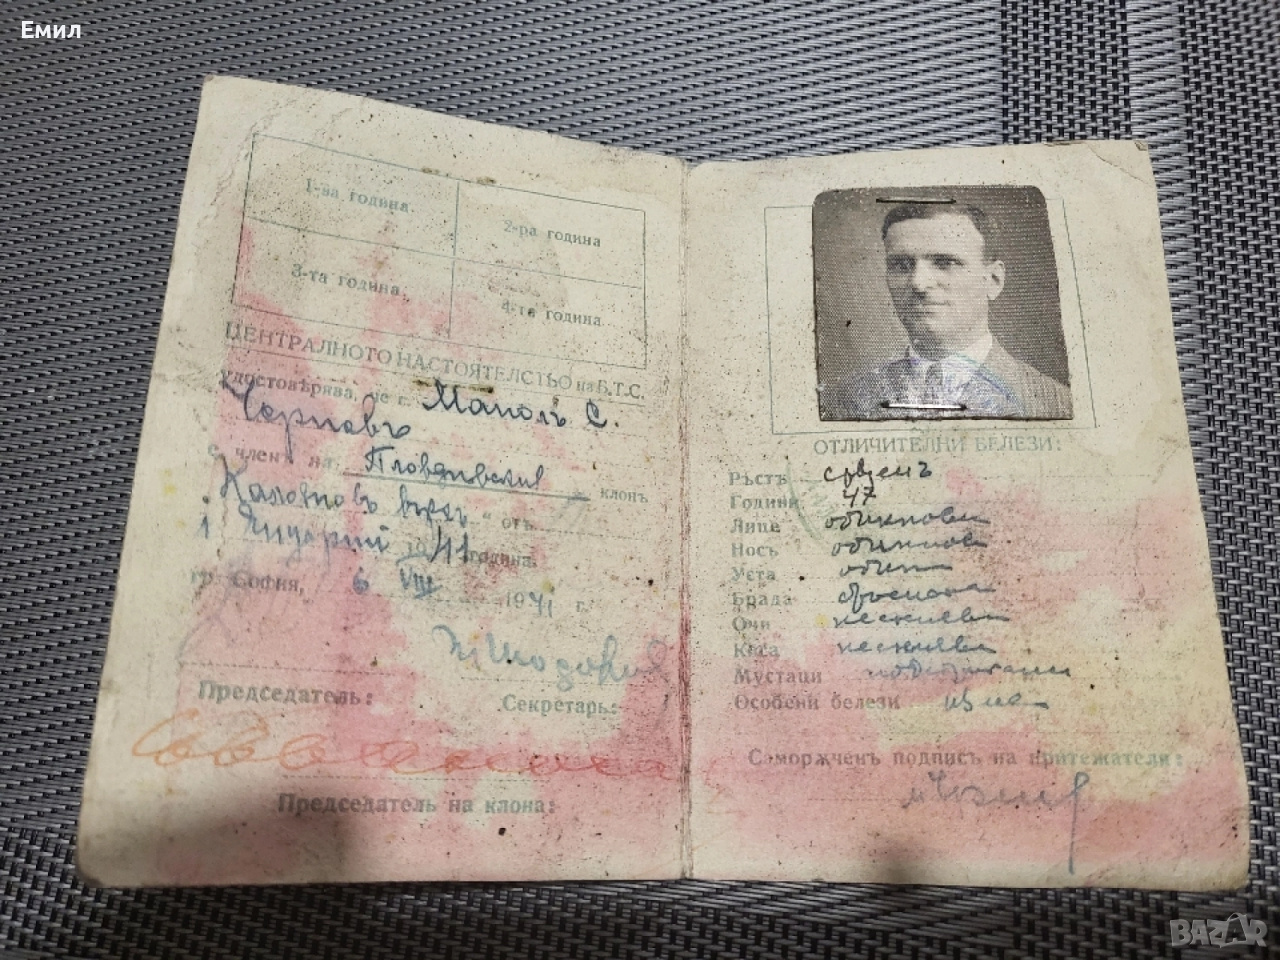 Емил
1-ва година.
2-ра година
3-та година.
4-та година.
ЦЕНТРАЛНОТО НАСТОЯТЕЛСТВО на Б.Т.С.
удостовѣрява, че г. Манолъ С.
Чернавъ
е членъ на Пловдивския клонъ
Каловновъ връхъ" отъ
1 Януарий 1941 година.
гр. София, 6 VIII 1941 г.
Председатель:
Секретарь:
Председатель на клона:
ОТЛИЧИТЕЛНИ БЕЛЕЗИ:
Ръстъ срѣденъ
Години 47
Лице обикновено
Носъ обикновен
Уста обикн
Брада
Очи кестеняви
Коса кестенява
Мустаци подстригани
Особени белези няма
Саморѫченъ подпись на притежателя:
BAZAR